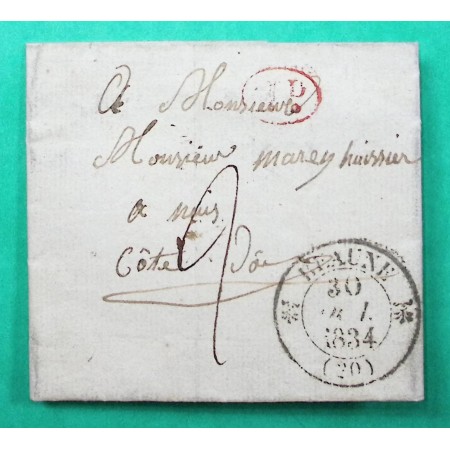 A Monsieur
Monsieur marey huissier
a nuis
Côte Dôr
2
BEAUNE
30
1834
(20)